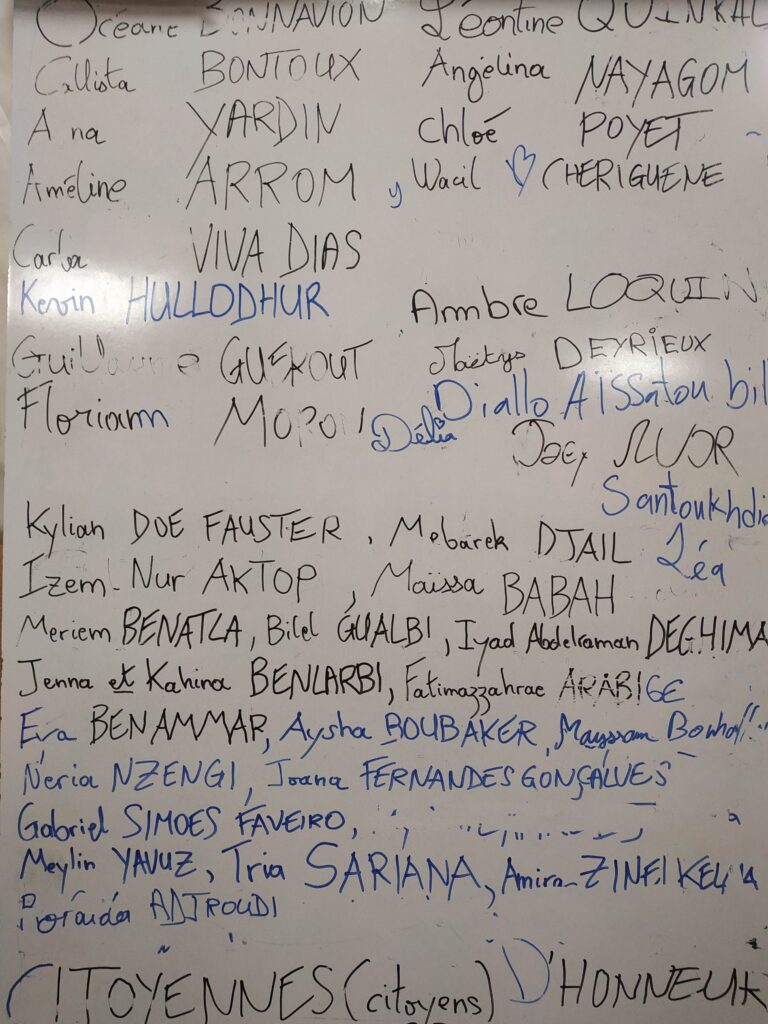 Océane BONNAVION Léontine QUINKAL
Callista BONTOUX Angélina NAYAGOM
Ana YARDIN Chloé POYET
Améline ARROM y Wacil CHERIGUENE
Carla VIVA DIAS
Kevin HULLODHUR Ambre LOQUIN
Guillaume GUEKOUT Maëlys DEYRIEUX
Diallo AISSatou bil
Florian Délia
Joey
Santoukhdi
Kylian DOE FAUSTER, Mebarek DJAIL Léa
Izem-Nur AKTOP, Maïssa BABAH
Meriem BENATLA, Bilel GUALBI, Iyad Abdelraman DEGHIMA
Jenna et Kahina BENLARBI, Fatimazzahrae ARABIGE
Eva BENAMMAR, Aysha BOUBAKER, Mayssam
Neria NZENGI, Joana FERNANDES GONÇALVES
Gabriel SIMOES FAVEIRO,
Meylin YAVUZ, Tria SARIANA, Amira
ADJROUDI
CITOYENNES (citoyens) D'HONNEUR